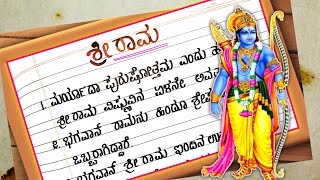 ಶ್ರೀ ರಾಮ
1. ಮರ್ಯಾದಾ ಪುರುಷೋತ್ತಮ ಎಂದು
ಶ್ರೀ ರಾಮ ವಿಷ್ಣುವಿನ ಏಳನೇ
2. ಭಗವಾನ್ ರಾಮನು ಹಿಂದೂ
ಒಬ್ಬರಾಗಿದ್ದಾರೆ
ಭಗವಾನ್ ಶ್ರೀ ರಾಮ ಇಂದಿನ